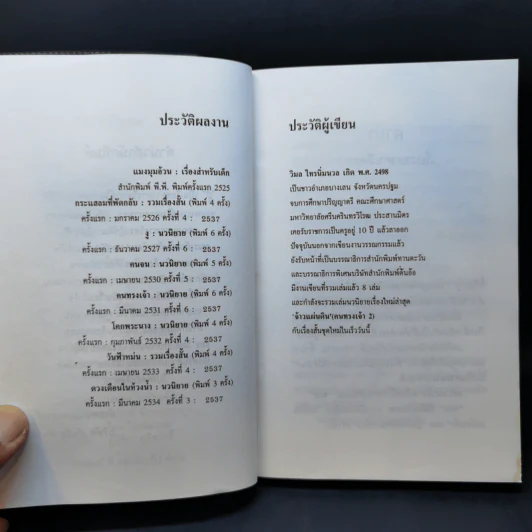 ประวัติผลงาน
แมงมุมอ้วน : เรื่องสำหรับเด็ก
สำนักพิมพ์ พี.พี. พิมพ์ครั้งแรก 2525
กระแสลมที่พัดกลับ : รวมเรื่องสั้น (พิมพ์ 4 ครั้ง)
ครั้งแรก : มกราคม 2526 ครั้งที่ 4 : 2537
งู : นวนิยาย (พิมพ์ 6 ครั้ง)
ครั้งแรก : ธันวาคม 2527 ครั้งที่ 6 : 2537
คนจน : นวนิยาย (พิมพ์ 5 ครั้ง)
ครั้งแรก : เมษายน 2530 ครั้งที่ 5 : 2537
คนทรงเจ้า : นวนิยาย (พิมพ์ 6 ครั้ง)
ครั้งแรก : มีนาคม 2531 ครั้งที่ 6 : 2537
โคกพระนาง : นวนิยาย (พิมพ์ 4 ครั้ง)
ครั้งแรก : กุมภาพันธ์ 2532 ครั้งที่ 4 : 2537
วันฟ้าหม่น : รวมเรื่องสั้น (พิมพ์ 4 ครั้ง)
ครั้งแรก : เมษายน 2533 ครั้งที่ 4 : 2537
ดวงเดือนในห้วงน้ำ : นวนิยาย (พิมพ์ 3 ครั้ง)
ครั้งแรก : มีนาคม 2534 ครั้งที่ 3 : 2537
ประวัติผู้เขียน
วิมล ไทรนิ่มนวล เกิด พ.ศ. 2498
เป็นชาวอำเภอบางเลน จังหวัดนครปฐม
จบการศึกษาปริญญาตรี คณะศึกษาศาสตร์
มหาวิทยาลัยศรีนครินทรวิโรฒ ประสานมิตร
เคยรับราชการเป็นครูอยู่ 10 ปี แล้วลาออก
ปัจจุบันนอกจากเขียนงานวรรณกรรมแล้ว
ยังรับหน้าที่เป็นบรรณาธิการสำนักพิมพ์ทานตะวัน
และบรรณาธิการพิเศษบริษัทสำนักพิมพ์ต้นอ้อ
มีงานเขียนที่รวมเล่มแล้ว 8 เล่ม
และกำลังจะรวมเล่มนวนิยายเรื่องใหม่ล่าสุด
'จ้าวแผ่นดิน'(คนทรงเจ้า 2)
กับเรื่องสั้นชุดใหม่ในเร็ววันนี้